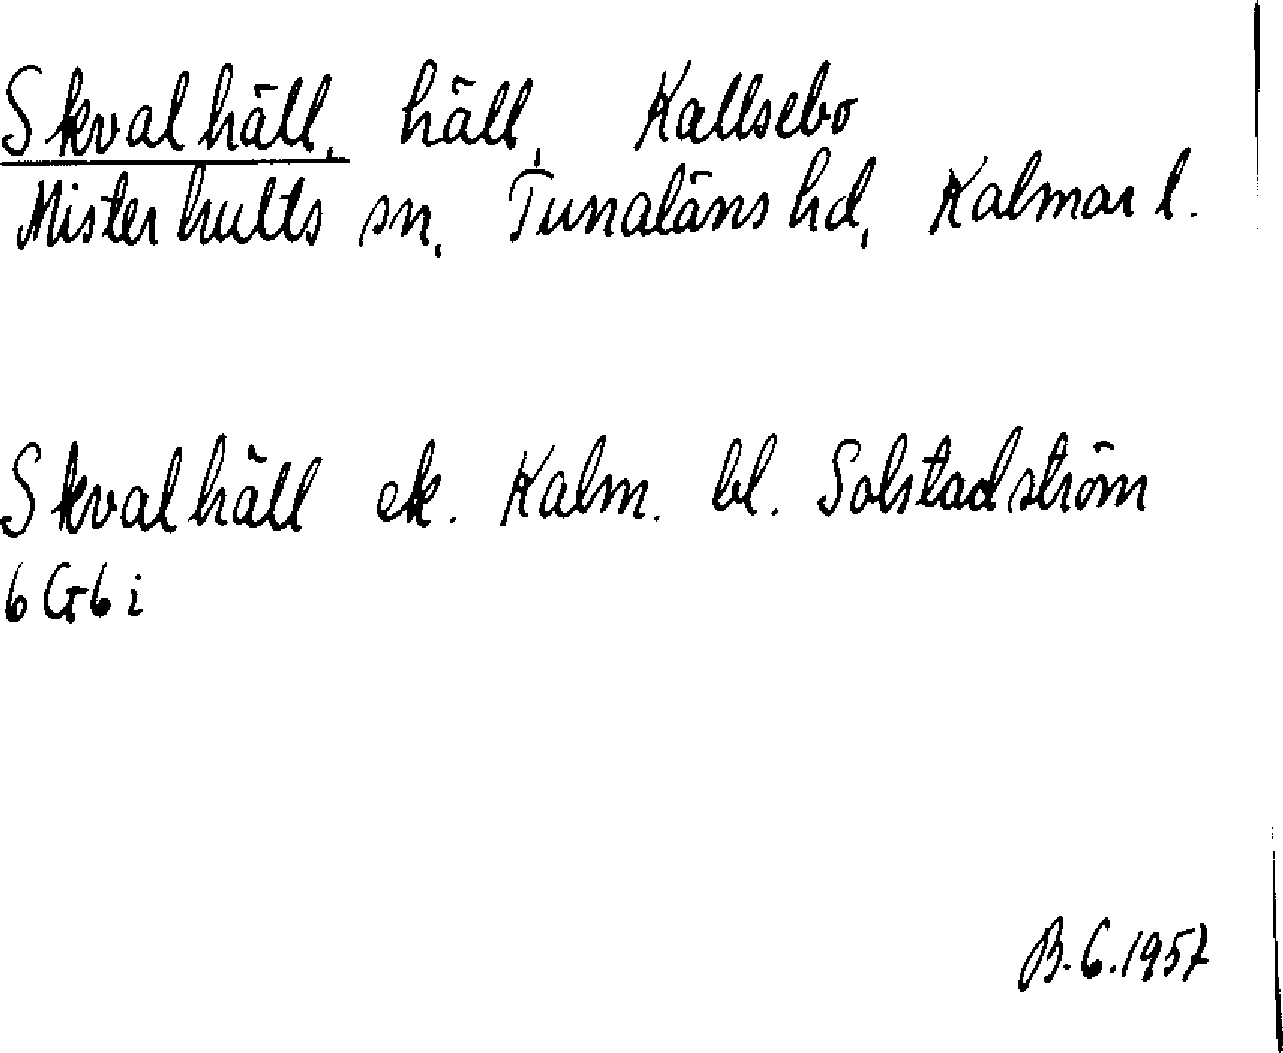 Skvalhäll, häll, Kallsebo
Misterhults sn, Tunaläns hd, Kalmar l.
Skvalhäll ek. Kalm. bl. Solstadström
6 G 6 i
B.G.1957